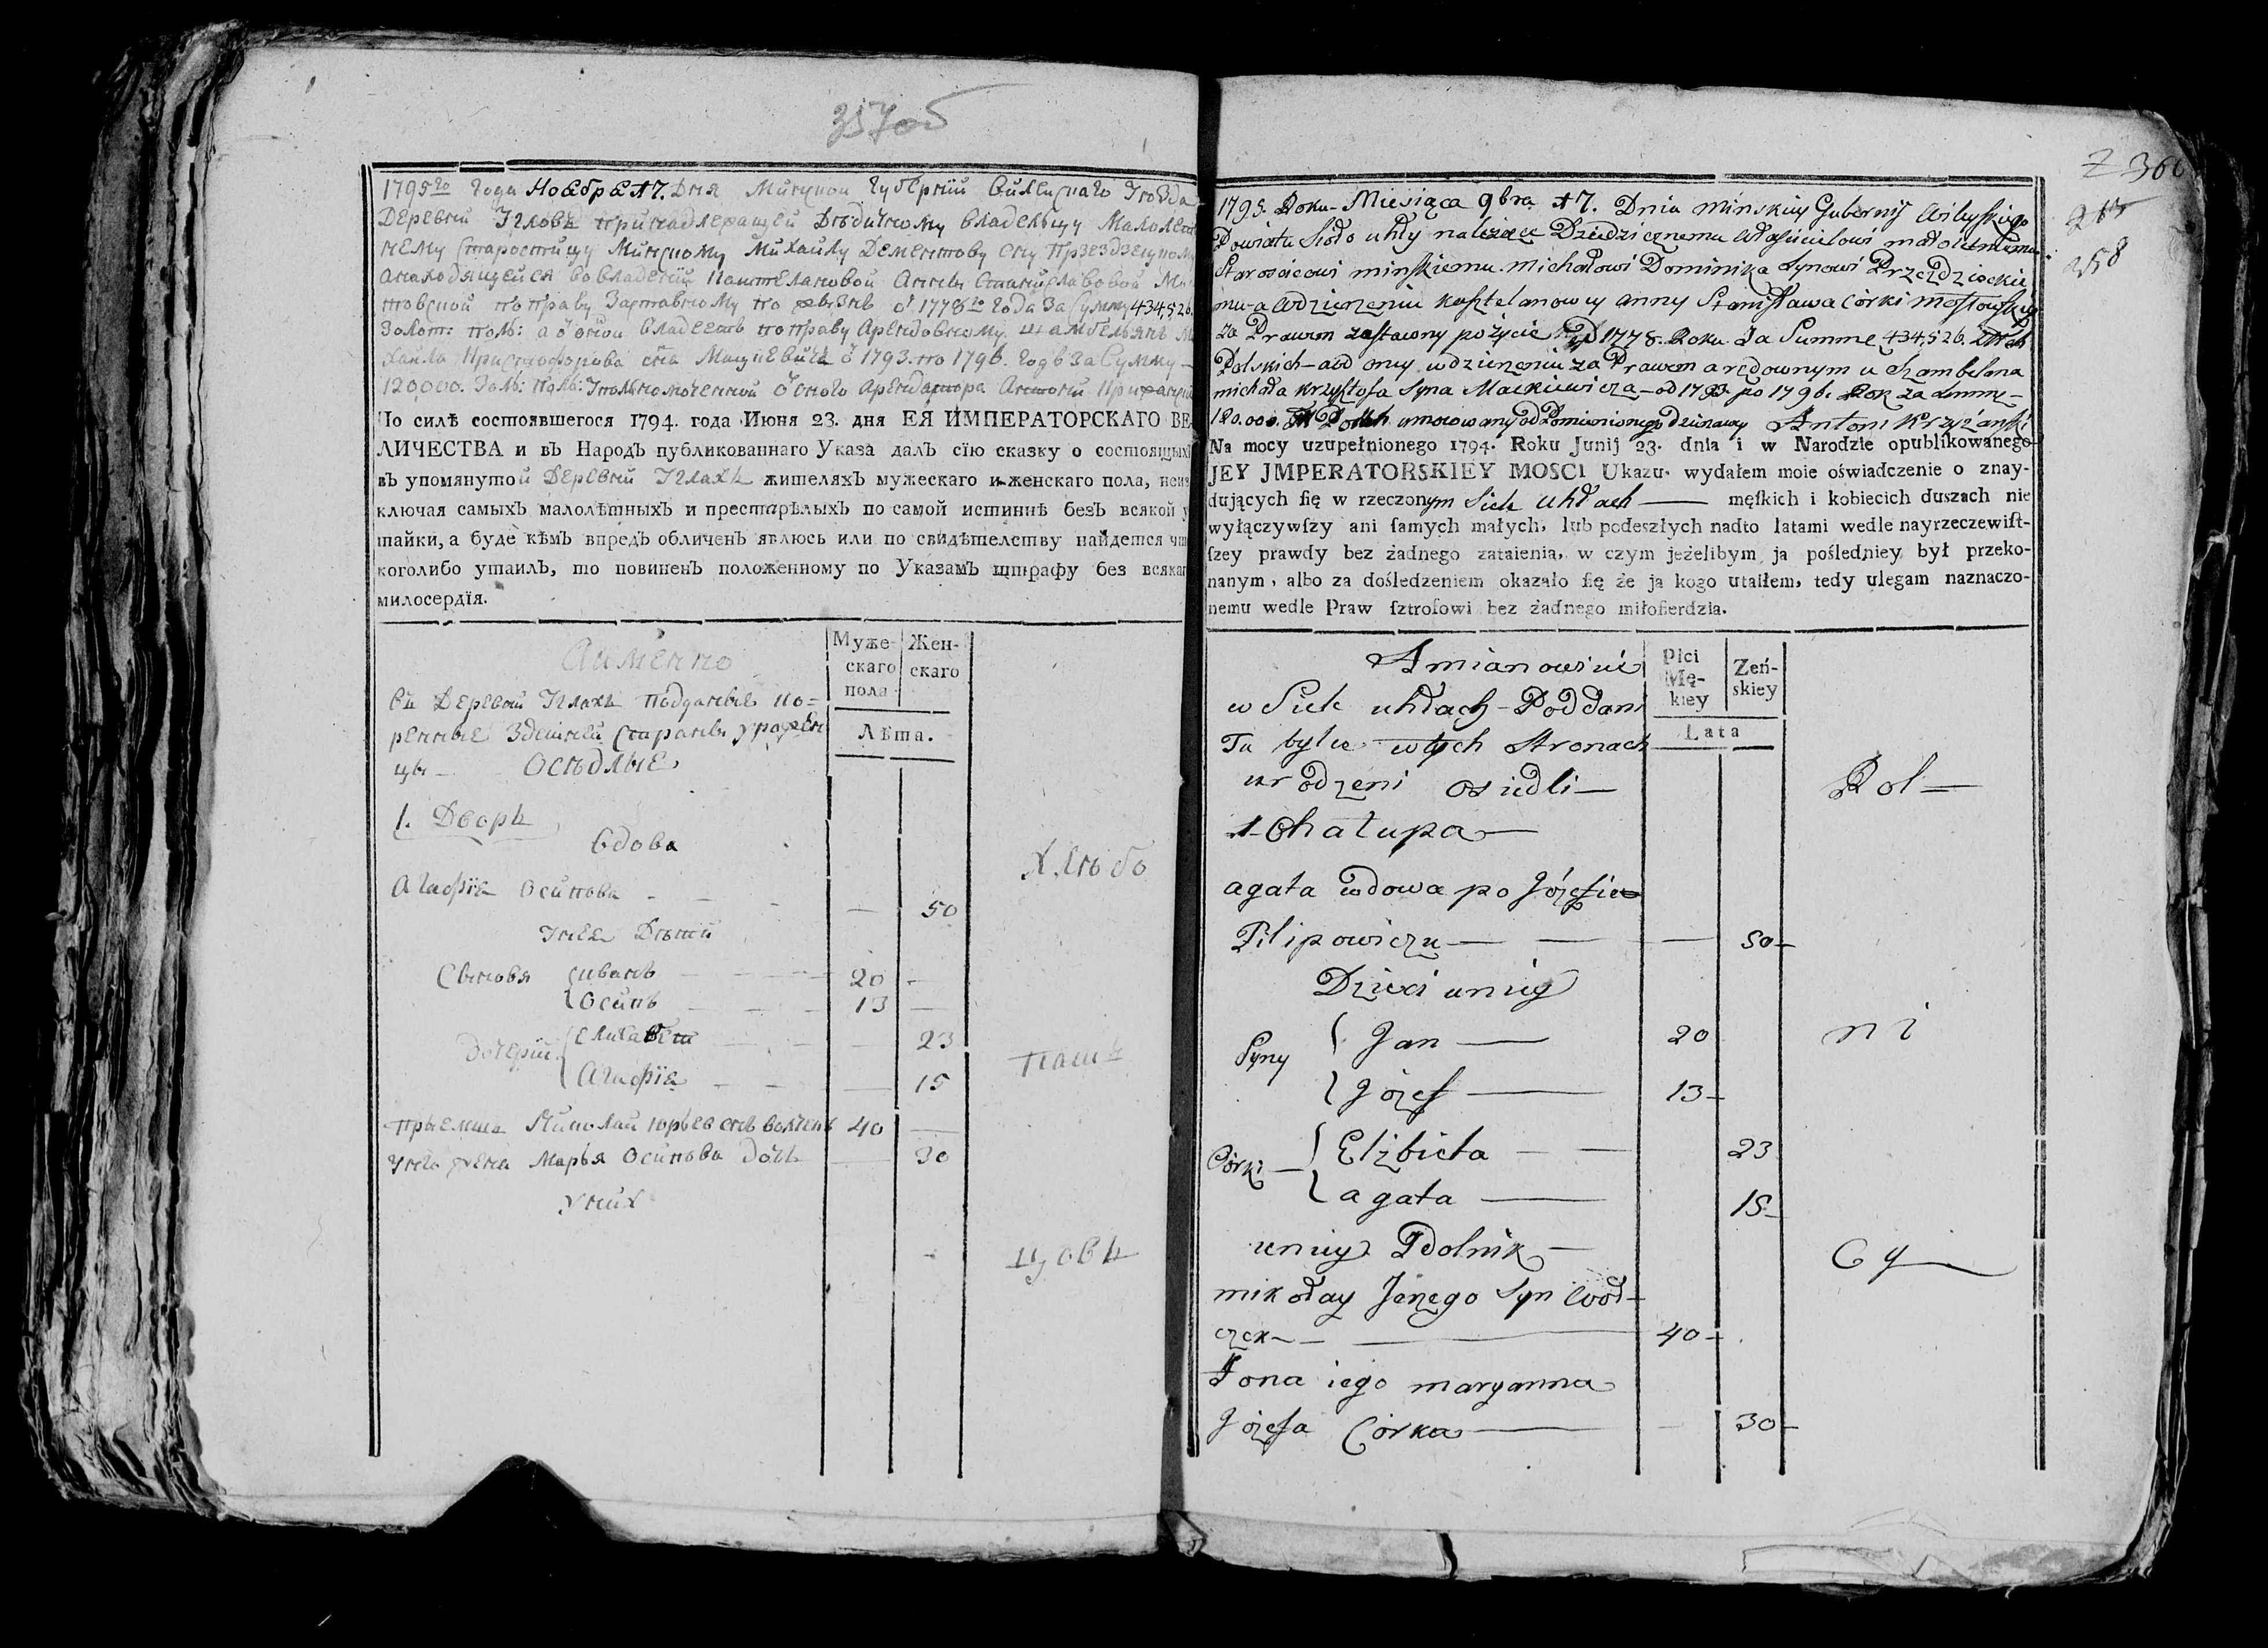 357об
1795го Года Ноебре 17. Дня Минской Губернии Вилейскаго Уезда
Деревни Угловъ принадлежащей Дедичному владельцу Малолет
нему Старостичу Минскому Михайлу Дементову сну Презездзецкому
анаходящейся во владении Каштеляновой Анны Станиславовой Мо
товской по праву Заставному по жизнь от 1778го Года За Сумму 434,526.
Золот: поль: а оной владеетъ по праву Арендовному Шамбелянъ М
хайла Криштофорова сна Мацкевича о 1793. по 1796. Годъ За Сумму —
120,000. Зол: поль: Уполномоченной оного Арендатора Антоній
По силѣ состоявшегося 1794. года Июня 23. дня ЕЯ ИМПЕРАТОРСКАГО ВЕ
ЛИЧЕСТВА и въ Народъ публикованнаго Указа далъ сїю сказку о состоящыхъ
въ упомянутой Деревни Углахъ жителяхъ мужескаго и женскаго пола, неис
ключая самыхъ малолѣтныхъ и престарѣлыхъ по самой истиннѣ безъ всякой у
тайки, а буде кѣмъ впредь обличенъ явлюсь или по свидѣтелству найдется что
коголибо утаилъ, то повиненъ положенному по Указамъ штрафу без всякаг
милосердїя.
Аименно
Муже-скаго пола
Жен-скаго
Лѣта.
въ Деревни Углахъ подданые ко=
ренные Здешней стараны урожен
цы — Оседлые
1. Дворъ
Вдова
Хлебо
Агафїя Осипова — — 50
Унея Дети
Сыновя { иванъ — — 20 —
{ Осипъ — — 13 —
Дочери { Елисавет — — 23
{ Агафїя — — 15
паш
прыемша Николай юрьев снъ 40 —
Унего жена Марья Осипова дочь — 30
Уних
цовъ
Z 366
215
258
1795. Roku Miesiąca 9bra 17. Dnia Minskiey Gubernij Wileyskiego
Powiatu Sioło uhły należące Dziedzicznemu Właścicielowi małoletniemu
Starościcowi minskiemu michałowi Dominika Synowi Przezdzieckie
mu a wdzierzeniu kasztelanowey anny Stanisława Corki mostowskiey
za Prawem zastawny pożycie od 1778. Roku Za Summe 434,526. złłch
Polskich — aod oney wdzierzeniu za Prawem arędownym u Szambelana
michała krzysztofa Syna Mackiewicza — od 1793. po 1796. Rok za Summe —
120.000. umocowany od Pomienionego dzierzawcy Antoni Krzyżański
Na mocy uzupełnionego 1794. Roku Junij 23. dnia i w Narodzie opublikowanego
JEY JMPERATORSKIEY MOSCI Ukazu. wydałem moie oświadczenie o znay-
dujących ſię w rzeczonym Siele uhłach — męſkich i kobiecich duszach nie
wyłączywſzy ani ſamych małych, lub podeszłych nadto latami wedle nayrzeczewiſt-
ſzey prawdy bez żadnego zataienia, w czym jeżelibym ja pośledniey był przeko-
nanym, albo za dośledzeniem okazało ſię że ja kogo utaiłem, tedy ulegam naznaczo-
nemu wedle Praw ſztrofowi bez żadnego miłoſierdzia.
A mianowicie
Płci Mę-kiey
Zeń-skiey
Lata
w Siele uhłach — Poddani
Tu bylce w tych Stronach
urodzeni osiedli —
Rol —
1 — Chałupa —
agata wdowa po Józefie
Pilipowiczu — — — 50 —
Dzieci uniey
Syny { Jan — 20
{ Józef — 13 —
ni
Córki — { Elżbieta — — 23
{ agata — 15 —
uniey Zdolnik —
cy
mikołay Jerzego Syn Woł-
czek — — 40 —
Żona iego maryanna
Józefa Córka — — 30 —